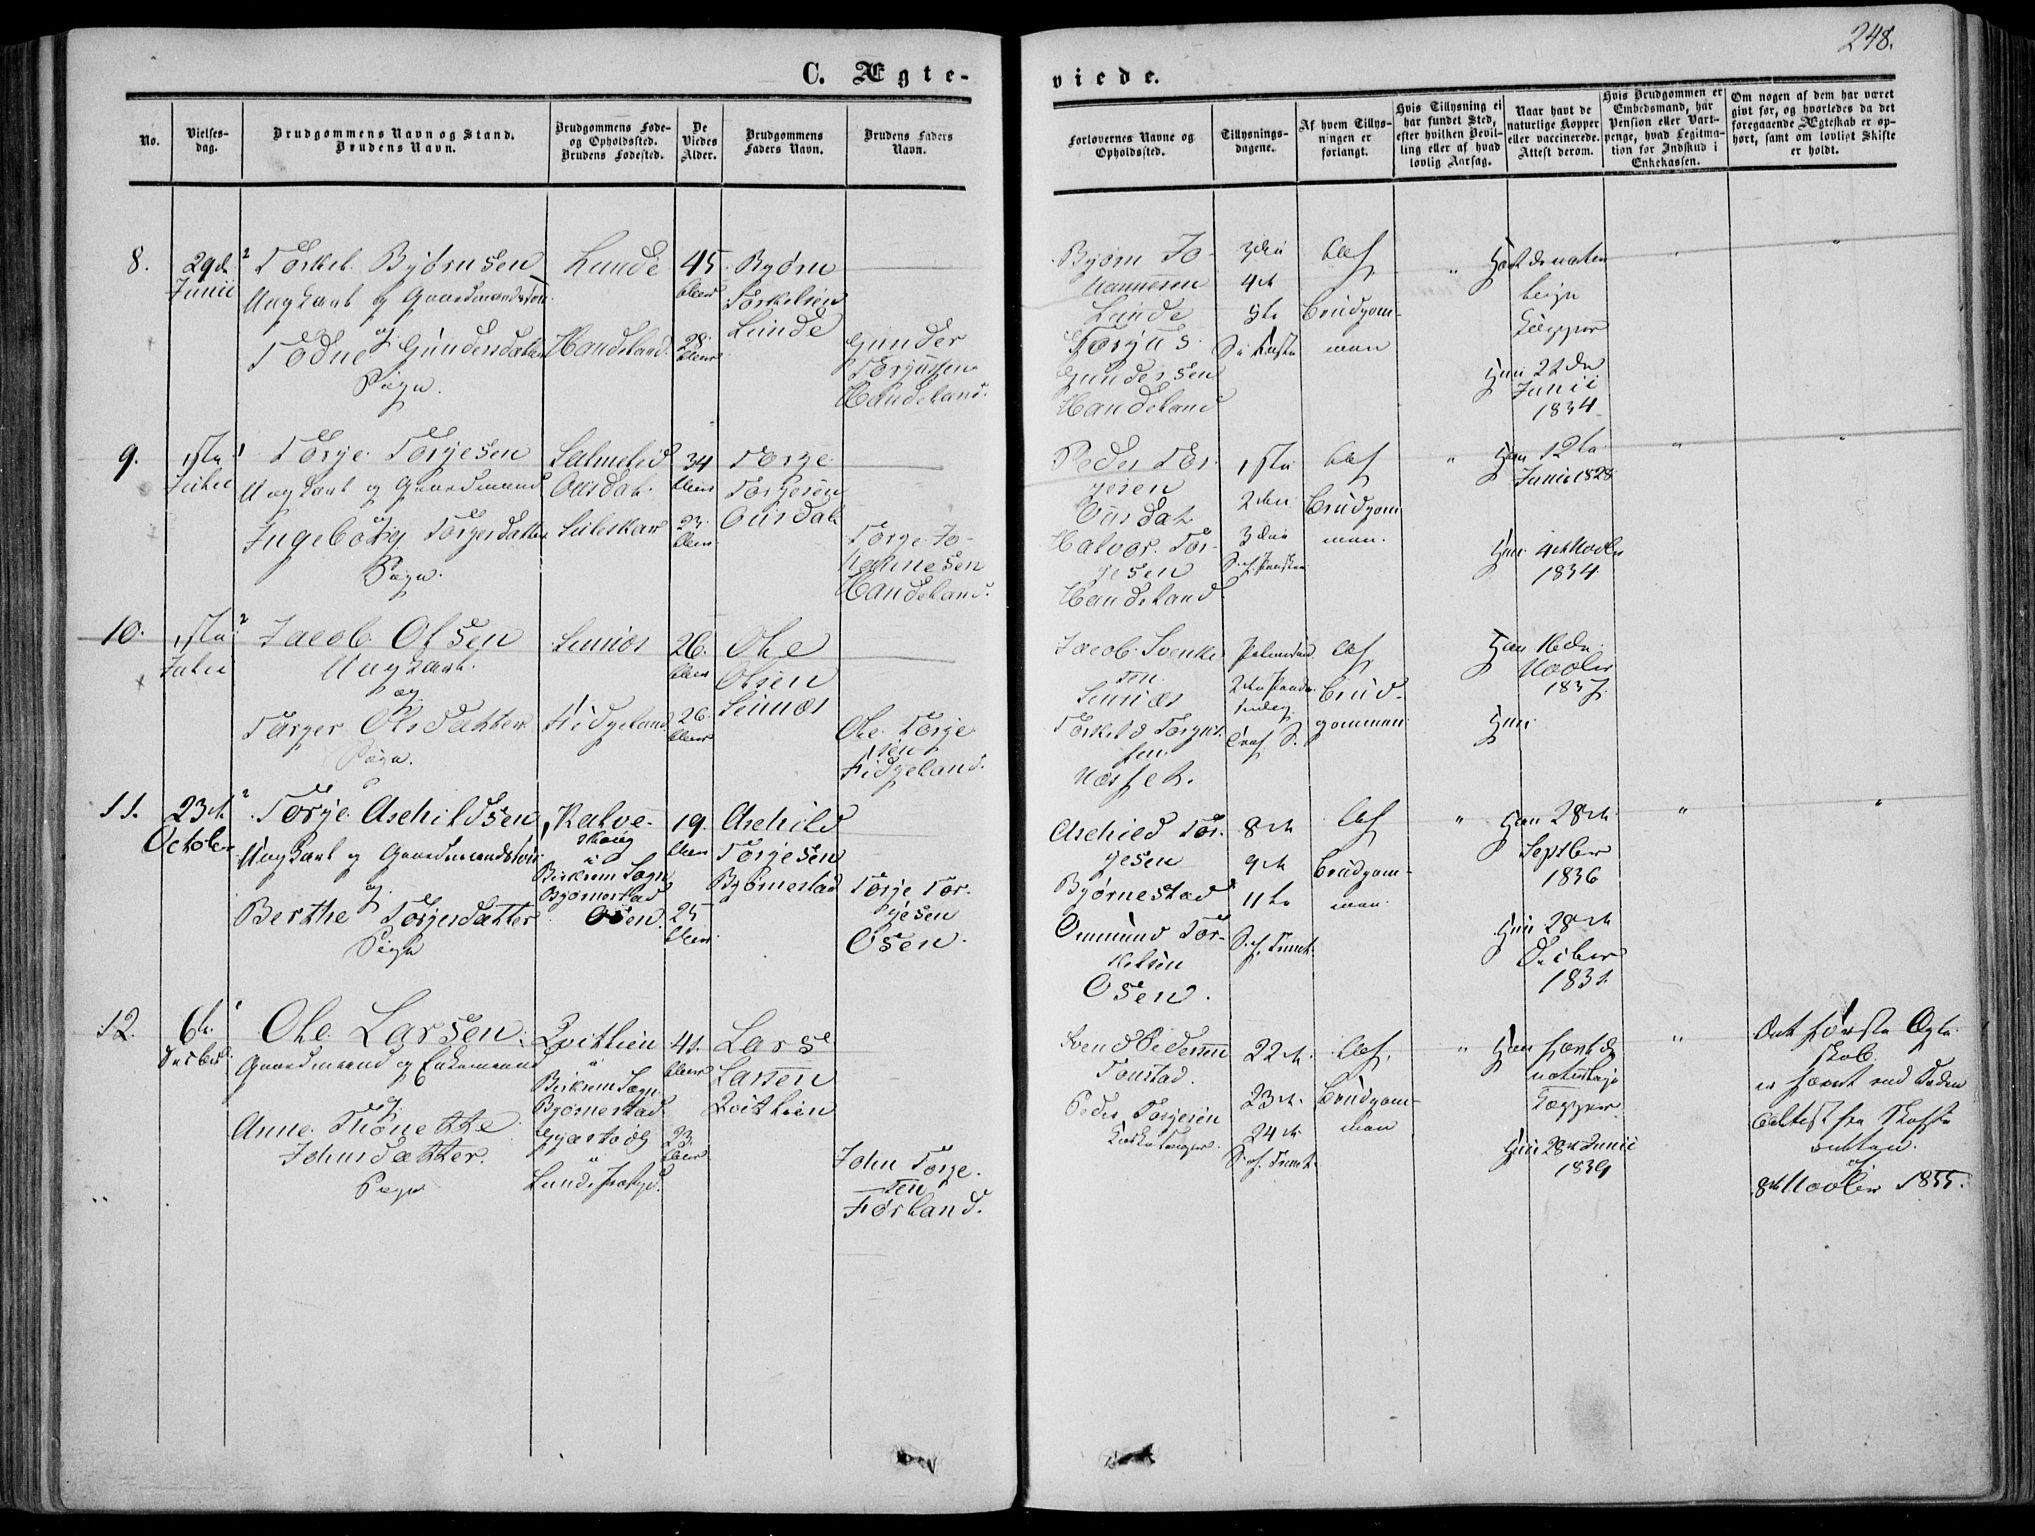 248.
C. Ægte-
viede.
No.
Vielses-
dag.
Brudgommens Navn og Stand.
Brudens Navn.
Brudgommens Føde-
og Opholdssted.
Brudens Fødested.
De
Viedes
Alder.
Brudgommens
Faders Navn.
Brudens Faders
Navn.
Forlovernes Navne og
Opholdssted.
Tillysnings-
dagene.
Af hvem Tillys-
ningen er
forlangt.
Hvis Tillysning ei
har fundet Sted,
efter hvilken Bevil-
ling eller af hvad
lovlig Aarsag.
Naar havt de
naturlige Kopper
eller vaccinerede.
Attest derom.
Hvis Brudgommen er
Embedsmand, har
Pension eller Vart-
penge, hvad Legitima-
tion for Indskud i
Enkekassen.
Om nogen af dem har været
gift før, og hvorledes da det
foregaaende Ægteskab er op-
hørt, samt om lovligt Skifte
er holdt.
8.
29de
Junii
Torkel Bjørnsen
Ungkarl og Gaardmandssøn
og
Todne Gundersdatter
Pige.
Lunde
Handeland.
45
Aar
28
Aar
Bjørn
Torkelsen
Lunde
Gunder
Torjussen
Handeland.
Bjørn Jo-
hannesen
Lunde
Torjus
Gundersen
Handeland
3die
4de
5te
Af
Brudgom-
men
"
Havt de naturlige
Kopper
Hun 22de
Junii
1834
"
"
9.
1ste
Julii
Torje Torjesen
Ungkarl og Gaardmand
og
Ingeborg Torjesdatter
Pige.
Salmelid
Ousdal.
Suleskar
34
Aar
23
Aar
Torje
Torjesen
Ousdal
Torje Jo-
hannesen
Handeland.
Peder Tor-
jesen
Ousdal
Halvor Tor-
jesen
Handeland
1ste
2den
3die
Af
Brudgom-
men.
"
Han 12te
Junii 1828
Hun 4de Novbr
1834
"
"
10.
1ste
Julii
Jacob Olsen
Ungkarl.
og
Torger Olsdatter
Pige.
Sinnes
Fidjeland
26
Aar
26
Aar
Ole
Olsen
Sinnes
Ole Torje-
sen
Fidjeland.
Jacob Svenke-
sen
Sinnes
Torkild Torjus-
sen
Næsset.
Palmesønd.
2den Paaske-
Af
Brud-
gommen
Han 16de
Novbr
1837.
Hun
11.
23de
October
Torje Aschildsen
Ungkarl og Gaardmandssøn
og
Berthe Torjesdatter
Pige
Kalve-
i
Birkrem Sogn
Bjørnestad
Osen.
19
Aar
25
Aar
Aschild
Torjesen
Bjørnestad
Torje Tor-
jesen
Osen.
Aschild Tor-
jesen
Bjørnestad
Ommund Tor-
kelsen
Osen.
8de
9de
11te
S. e. Trinit.
Af
Brudgom-
men
"
Han 28de
Septbr
1836
Hun 28de
Decbr
1831
"
"
12.
6te
Decbr
Ole Larsen
Gaardmand og Enkemand
og
Anne Thonette
Johnsdatter
Pige
Qvitlien
i
Birkrem Sogn
Bjørnestad
i
41
Aar
23
Aar
Lars
Larsen
Qvitlien
John Torje-
sen
Førland.
Svend Pedersen
Tonstad.
Peder Torjesen
22de
23de
24de
S. e. Trinit.
Af
Brudgom-
men
"
Han havt de
naturlige
Kopper
Hun 28de Junii
1839
"
Det første Ægte-
skab
er hævet ved Døden
Attest fra Skifte-
retten
af
8de Novbr 1855.
"